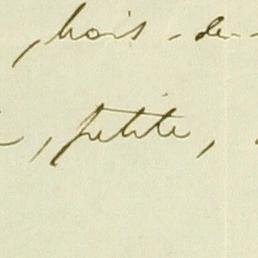 , bois - de -
, petite,